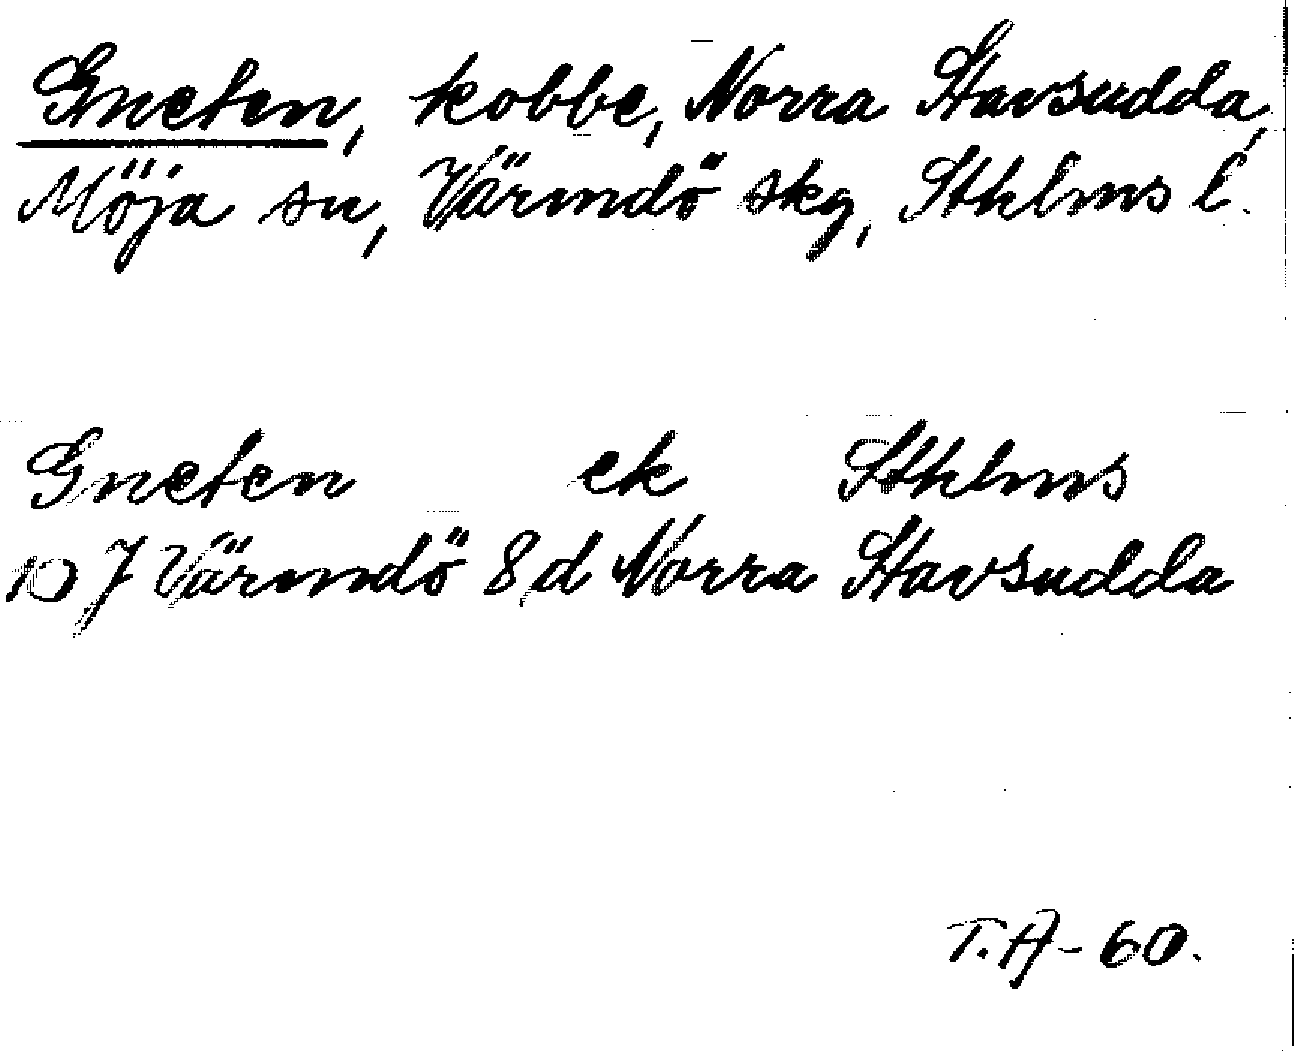 Gneten, kobbe, Norra Stavsudda,
Möja sn, Värmdö skg, Sthlms l.
Gneten ek Sthlms
10 J Värmdö 8 d Norra Stavsudda
T.A-60.